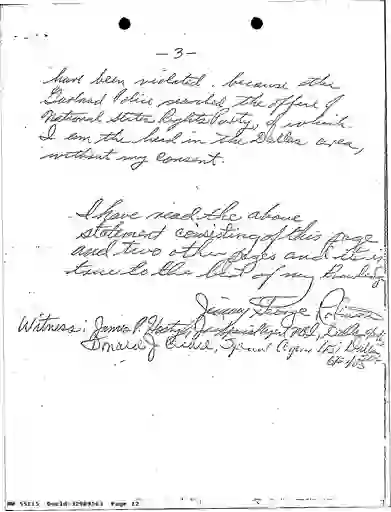 - 3 -
have been violated. because the
Garland Police searched the office of
National States Rights Party, of which
I am the head in the Dallas area,
without my consent.
I have read the above
statement consisting of this page
and two other pages and it is
true to the best of my knowledge
Jimmy George Robinson
Witness: James P. Hosty, Special Agent FBI, Dallas
Donald J. Special Agent FBI Dallas
NW 55115 DocId:32989563 Page 12